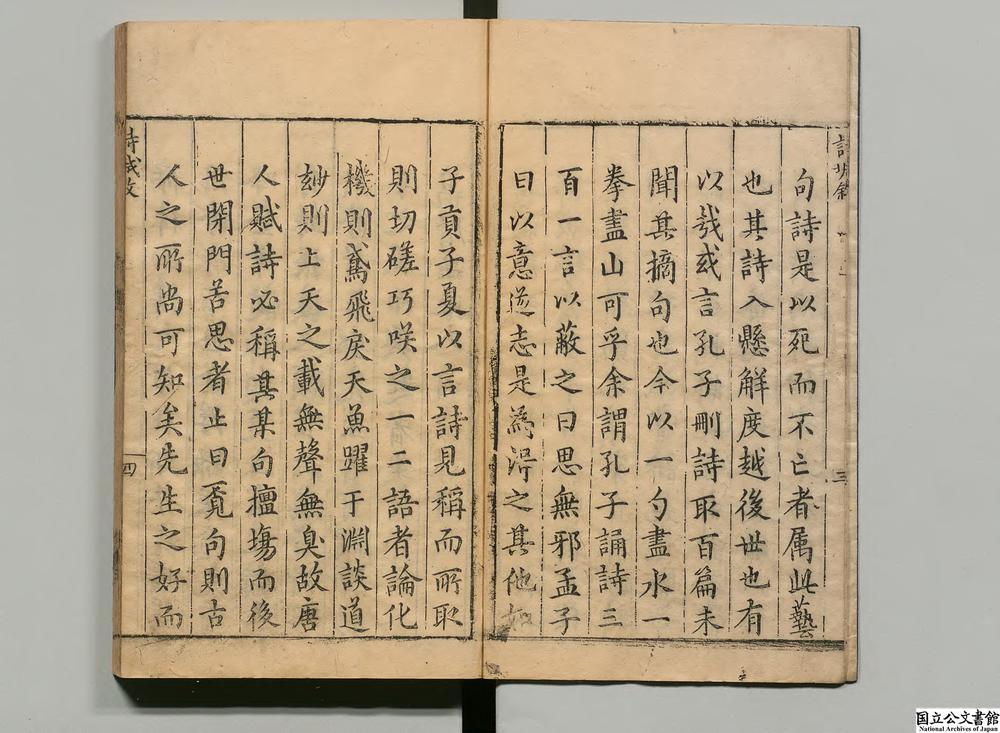 句詩是以死而不亡者属此藝
也其詩入懸解度越後世也有
以哉或言孔子刪詩取百篇未
聞其摘句也今以一勺盡水一
拳盡山可乎余謂孔子誦詩三
百一言以蔽之曰思無邪孟子
曰以意逆志是為淂之其他如
三
子貢子夏以言詩見稱而所取
則切磋巧咲之一二語者論化
機則鳶飛戾天魚躍于淵談道
玅則上天之載無聲無臭故唐
人賦詩必稱其某句擅塲而後
世閉門苦思者止曰覓句則古
人之所尚可知矣先生之好而
四
国立公文書館
National Archives of Japan